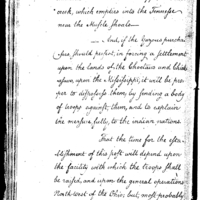 creek, which empties into the Tennessee
near the Muscle Shoals
— And, if the Yazous purcha-
sers should persist, in forcing a settlement
upon the lands of the Choctaws and Chicka
saws, upon the Mississippi, it will be pro-
per to dispossess them by sending a body
of troops against them, and to explain
the measure fully, to the indian nations
That the time for the esta-
blishment of this post will depend upon
the facility with which the troops shall
be raised, and upon the general operations
North-west of the Ohio; but most probably